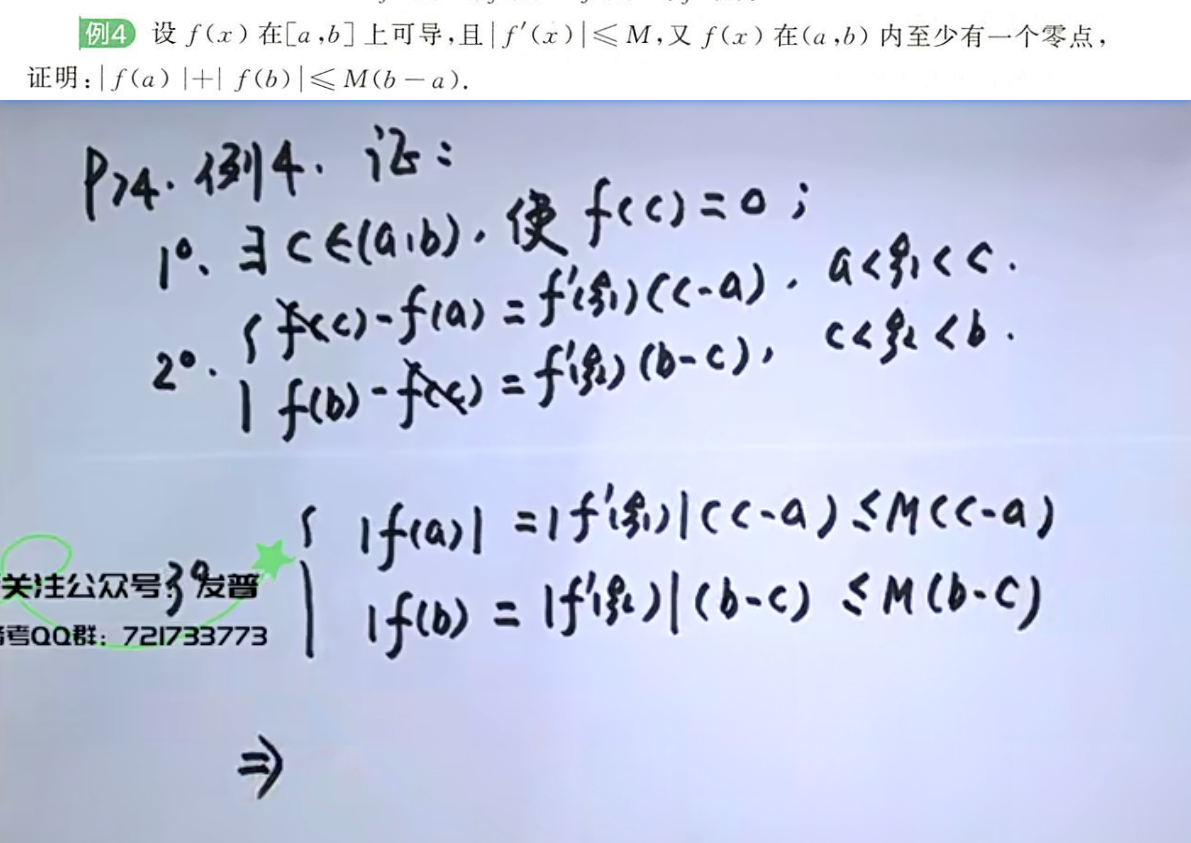 例4 设 f(x) 在[a,b]上可导,且|f′(x)|≤M,又 f(x) 在(a,b) 内至少有一个零点,
证明:|f(a)|+|f(b)|≤M(b-a).
P74. 例4. 证:
1°、∃ c∈(a,b), 使 f(c)=0;
2°. { f(c)-f(a)=f′(ξ₁)(c-a), a<ξ₁<c.
f(b)-f(c)=f′(ξ₂)(b-c), c<ξ₂<b.
3° { |f(a)| =|f′(ξ₁)|(c-a)≤M(c-a)
|f(b) = |f′(ξ₂)|(b-c) ≤M(b-c)
关注公众号 发普
考QQ群: 721733773
⇒